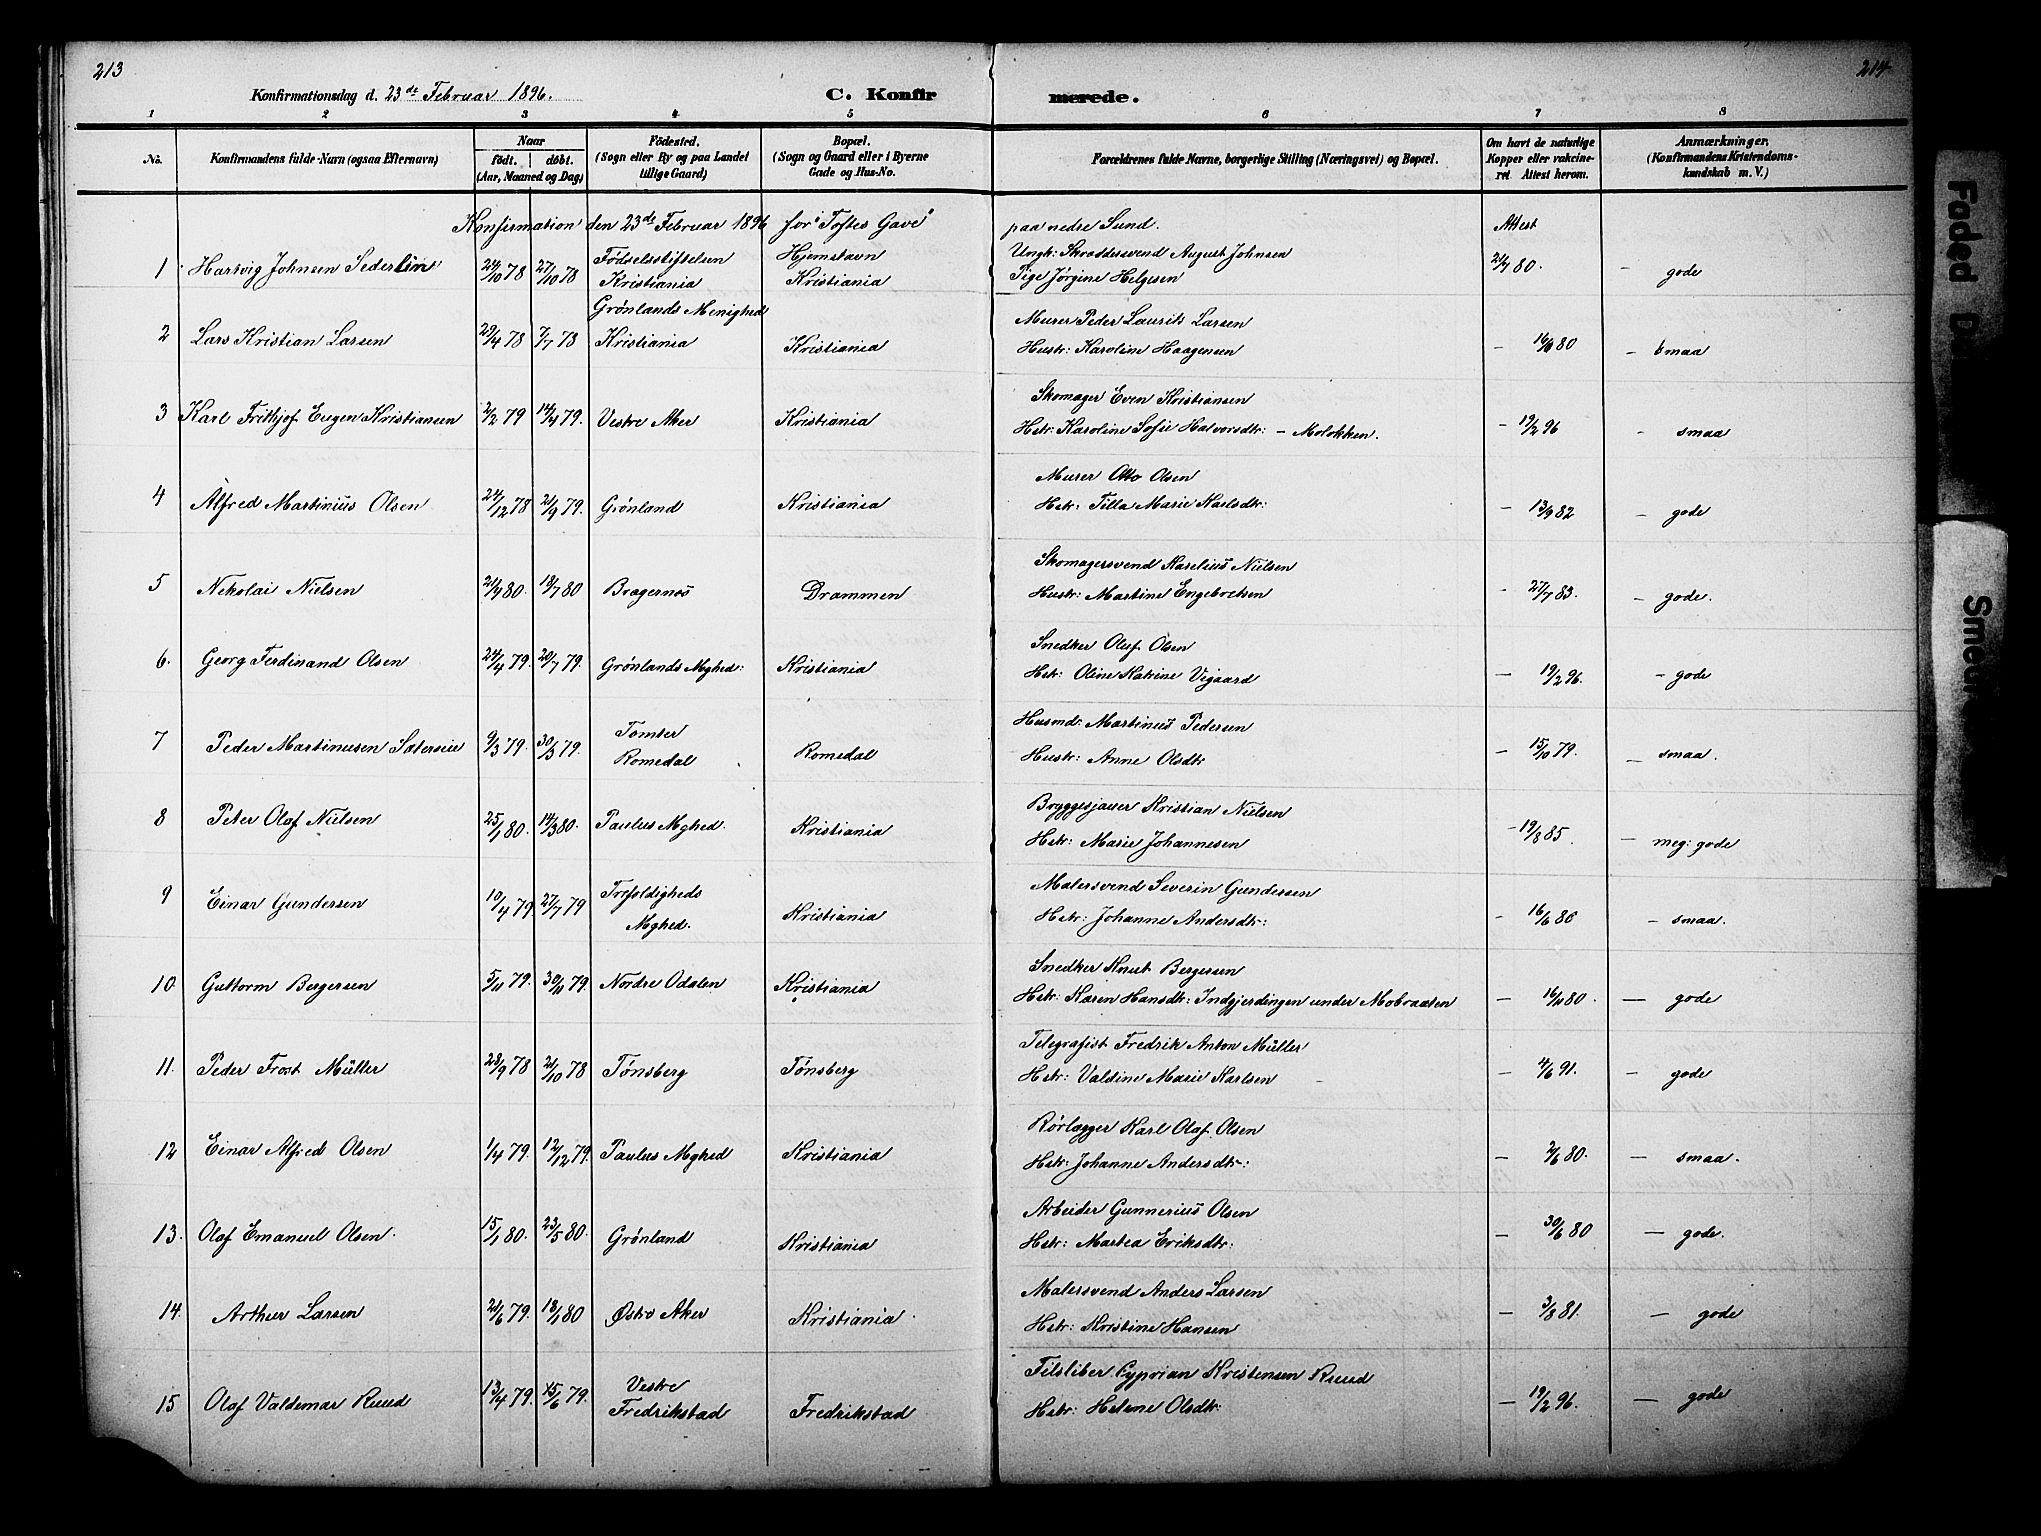 213
214
Konfirmationsdag d. 23de Februar 1896.
C. Konfir merede.
1 2 3 4 5 6 7 8
No.
Konfirmandens fulde Navn (ogsaa Efternavn)
Naar
født. døbt.
(Aar, Maaned og Dag)
Fødested.
(Sogn eller By og paa Landet
tillige Gaard)
Bopæl.
(Sogn og Gaard eller i Byerne
Gade og Hus-No.
Forældrenes fulde Navne, borgerlige Stilling (Næringsvei) og Bopæl.
Om havt de naturlige
Kopper eller vakcine-
ret Attest herom.
Anmærkninger.
(Konfirmandens Kristendoms-
kundskab m. V.)
Konfirmation den 23de Februar 1896 for "Toftes Gave" paa nedre Sund. Attest
1 Hartvig Johnsen Sederlin 24/10 78 27/10 78 Fødselsstiftelsen Kristiania Hjemstavn Kristiania Ungk: Skræddersvend August Johnsen
Pige Jørgine Helgesen 21/7 80. — gode
2 Lars Kristian Larsen 29/4 78 7/7 78 Grønlands Menighed Kristiania Kristiania Murer Peder Laurits Larsen
Hustr: Karoline Haagensen — 80 — smaa
3 Karl Frithjof Eugen Kristiansen 2/2 79 14/4 79. Vestre Aker Kristiania Skomager Even Kristiansen
Hstr: Karoline Sofie Halvorsdtr: — Molökken. — 19/2 96 — smaa
4 Alfred Martinius Olsen 24/12 78 21/9 79. Grønland Kristiania Murer Otto Olsen
Hstr: Tilla Marie Karlsdtr: — 13/9 82 — gode
5 Nikolai Nielsen 80. 18/7 80 Bragernes Drammen Skomagersvend Karelius Nielsen
Hustr: Martine Engebretsen — 27/7 83. — gode.
6. Georg Ferdinand Olsen 24/4 79. 20/7 79. Grønlands Mghed: Kristiania Snedker Oluf Olsen
Hstr: Oline Katrine Vigaard — 19/2 96. — gode
7 Peder Martinusen Sæterseie 9/3 79. 30/3 79. Tomter Romedal Romedal Husmd: Martinus Pedersen
Hustr: Anne Olsdtr — 15/10 79. — smaa.
8 Peter Olaf Nielsen 25/1 80. 14/3 80. Paulus Mghed. Kristiania Bryggesjauer Kristian Nielsen
Hstr: Marie Johannesen — 19/8 85. — meg: gode
9 Einar Gundersen 10/4 79 27/7 79 Trefoldigheds Mghed. Kristiania Malersvend Severin Gundersen
Hstr: Johanne Andersdtr: — 16/6 80 — smaa.
10 Guttorm Bergersen 5/11 79. 30/11 79. Nordre Odalen Kristiania Snedker Knut Bergersen
Hstr: Karen Hansdtr: Indgjerdingen under Mobraaten — 80. — gode
11. Peder Frost Müller 28/9 78 21/10 78 Tønsberg Tønsberg Telegrafist Fredrik Anton Müller
Hstr: Valdine Marie Karlsen — 4/6 91. — gode
12 Einar Alfred Olsen 1/4 79. 12/12 79. Paulus Mghed Kristiania Rørlægger Karl Olaf Olsen
Hstr: Johanne Andersdtr: — 2/6 80. — smaa.
13. Olaf Emanuel Olsen. 15/1 80. 23/5 80. Grønland Kristiania Arbeider Gunnerius Olsen
Hstr: Martea Eriksdtr: — 30/6 80 — gode.
14. Arthur Larsen 21/6 79. 18/1 80 Østre Aker Kristiania. Malersvend Anders Larsen
Hstr: Kristine Hansen — 3/8 81. — gode
15 Olaf Valdemar Ruud 13/4 79. 15/6 79. Vestre Fredrikstad Fredrikstad Filsliber Cyprian Kristensen Ruud
Hstr: Helene Olsdtr: — 19/2 96. — gode
Faded D
Smeu